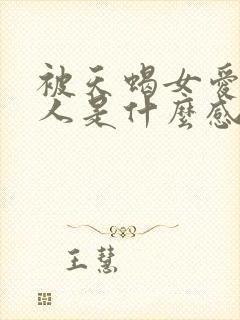 被天蝎女愛
人是什麼感
王慧